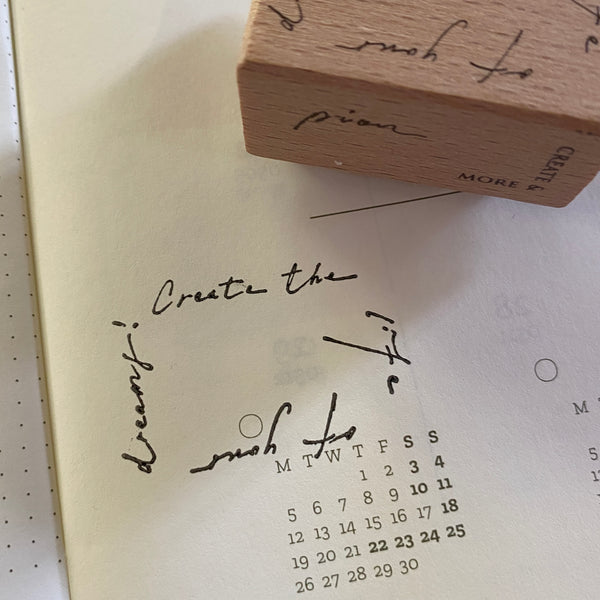 of your
pion
CREATE &
MORE &
Create the
life
of your
dreams!
M T W T F S S
1 2 3 4
5 6 7 8 9 10 11
12 13 14 15 16 17 18
19 20 21 22 23 24 25
26 27 28 29 30
M
5